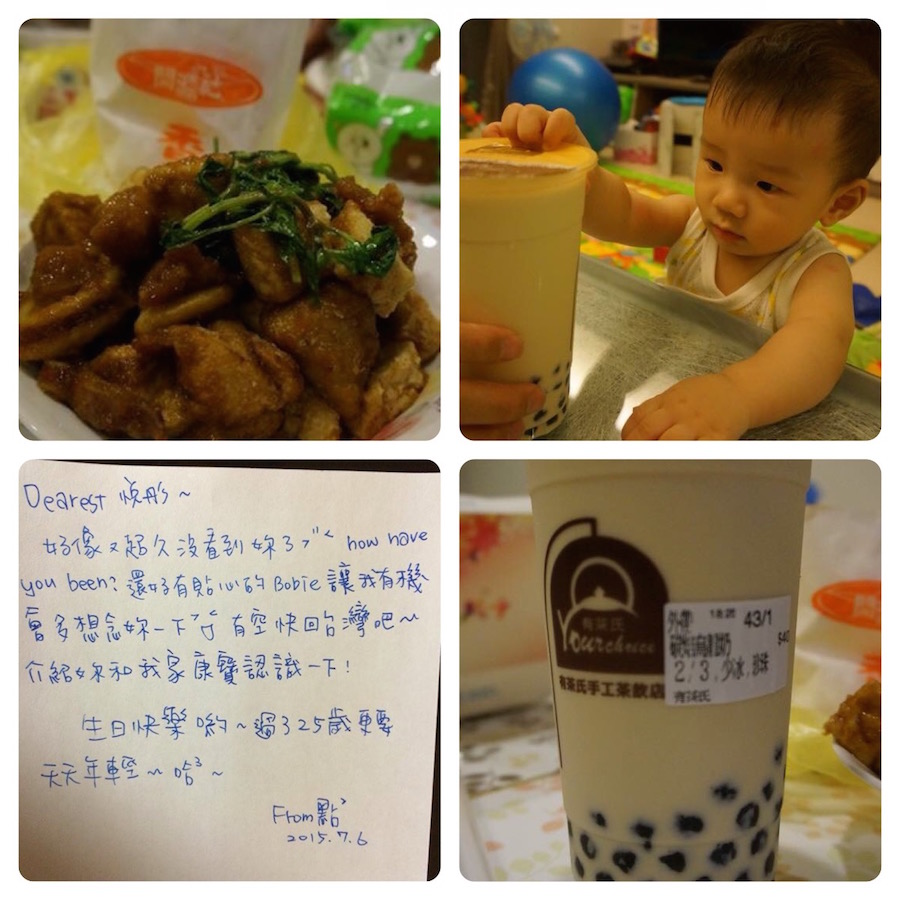 Dearest 悅彤~
好像又超久沒看到妳了 how have
you been? 還好有貼心的Bobie讓我有機
會多想念妳一下 有空快回台灣吧~
介紹妳和我家康寶認識一下!
生日快樂喲~過了25歲更要
天天年輕~哈³~
From 點²
2015.7.6
有茶氏
Yourchoice
有茶氏手工茶飲店
外帶 43/1
$40
2/3,少冰,珍珠
有茶氏